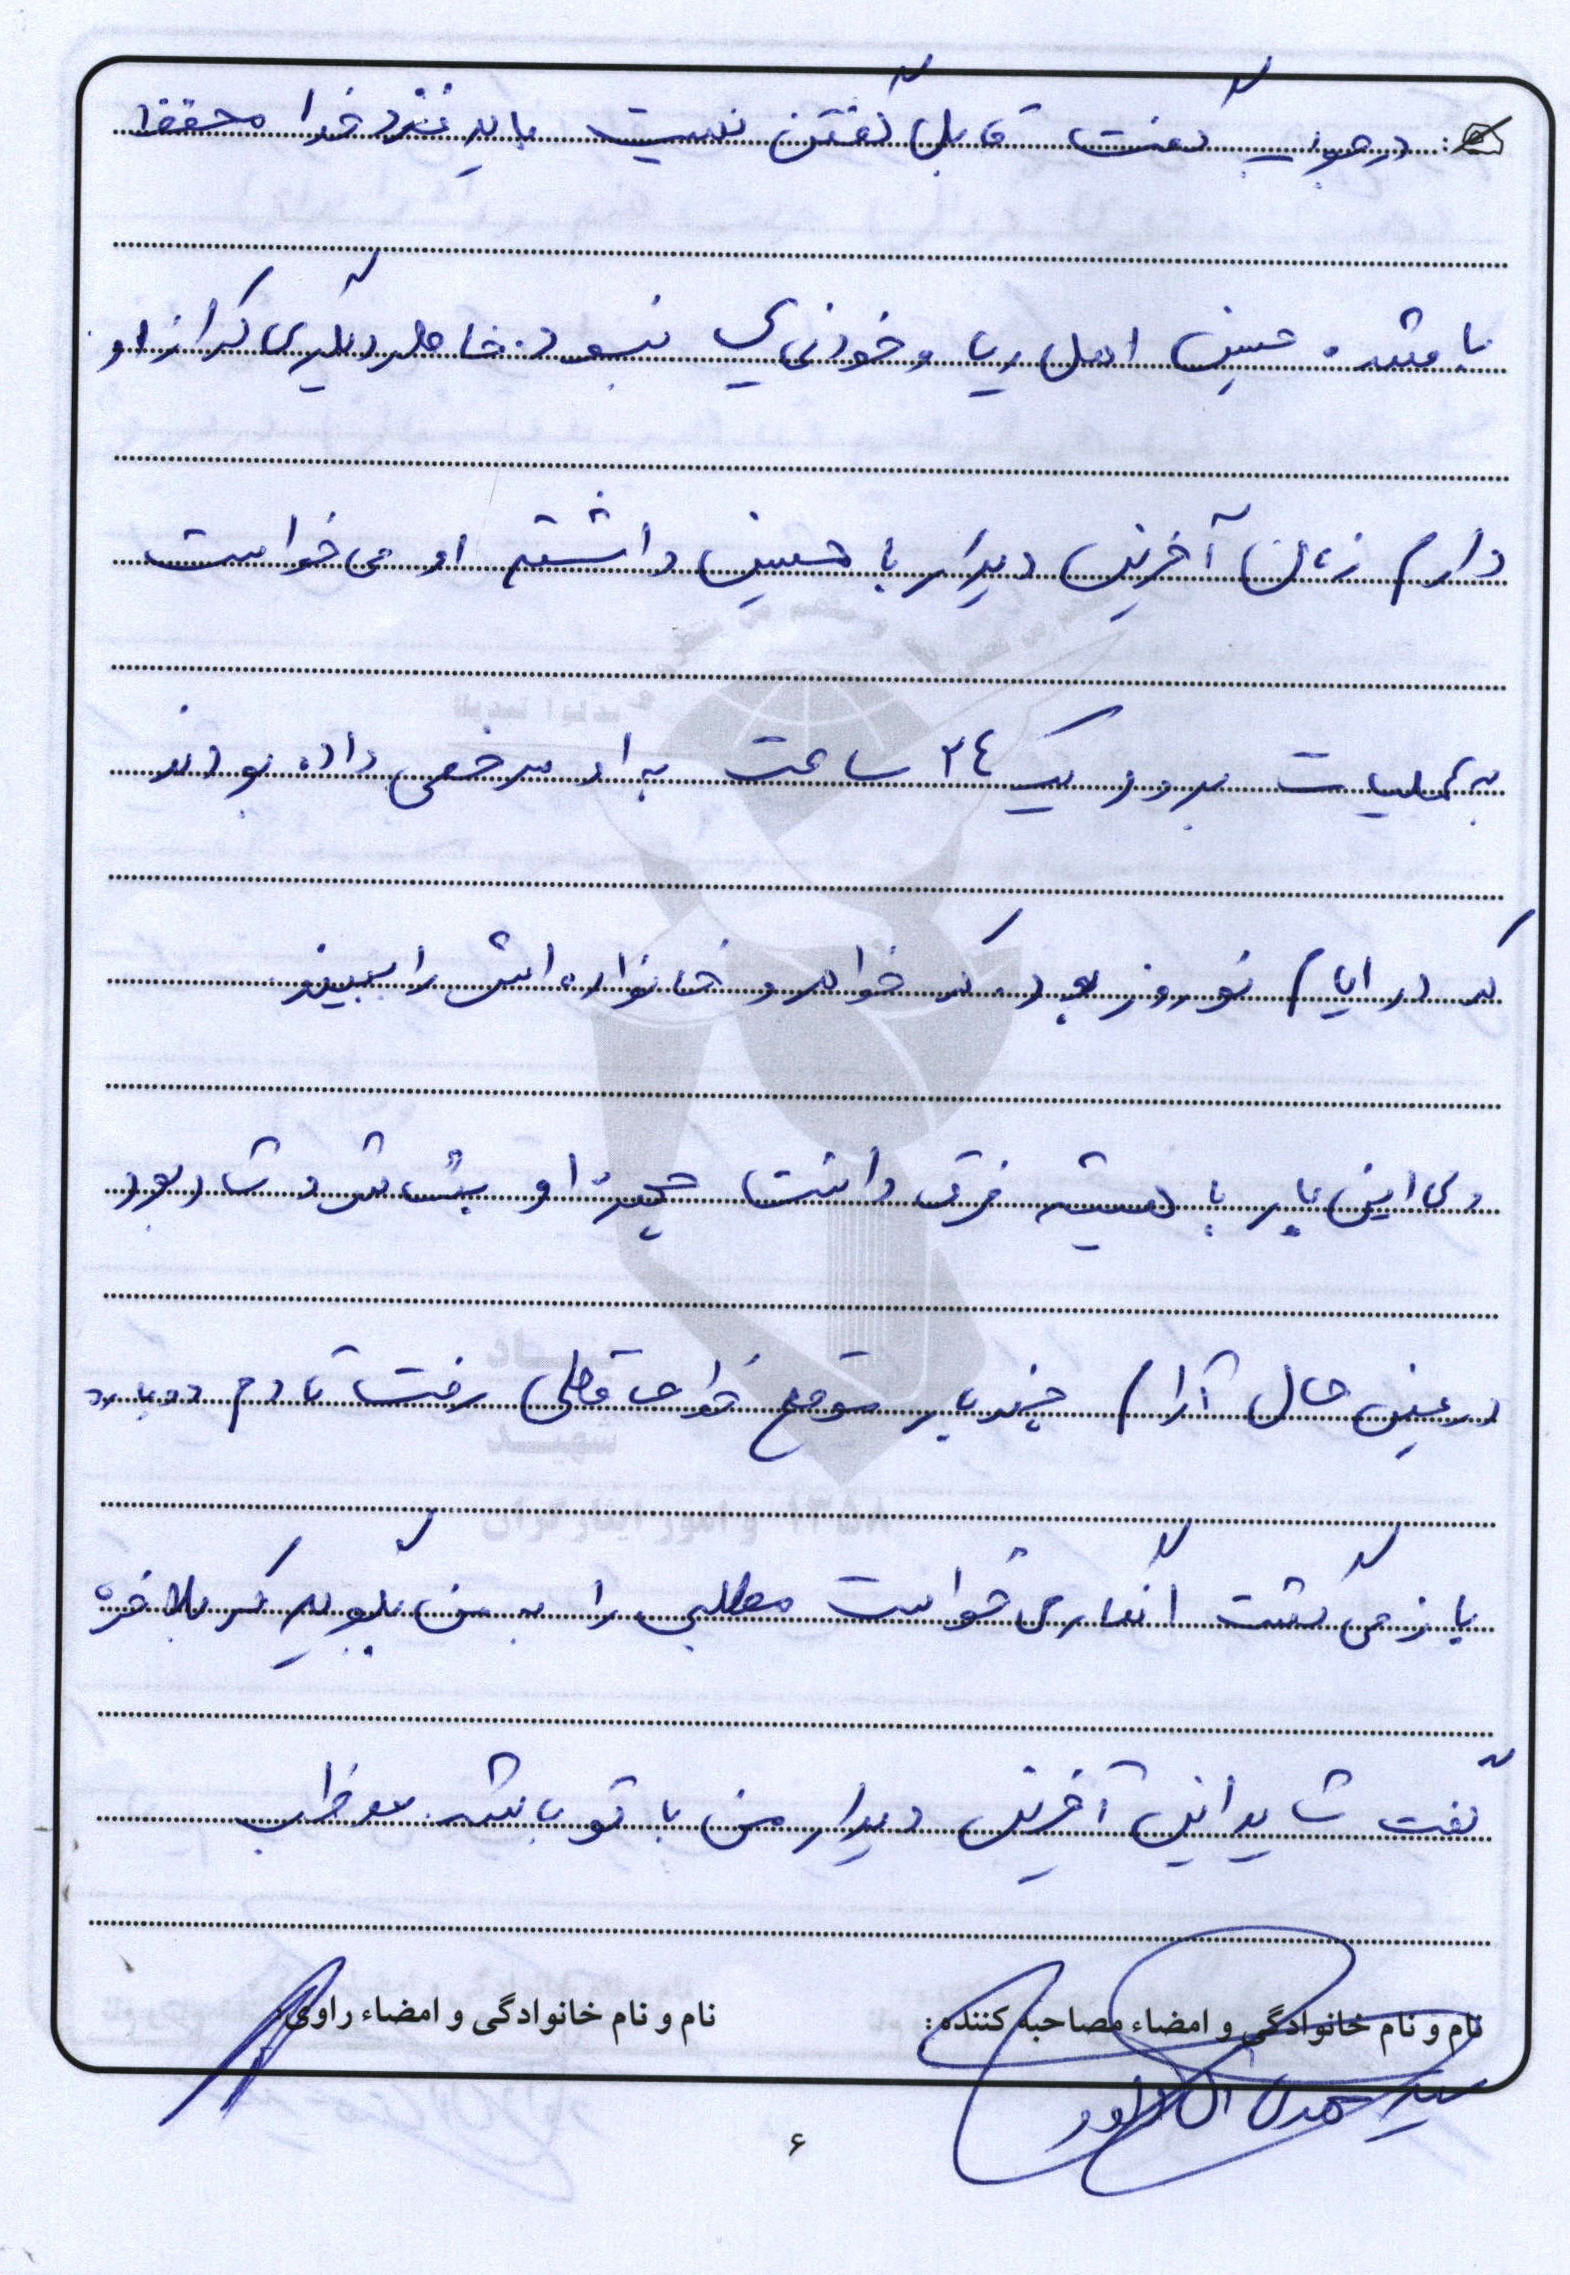 در جواب گفت قابل گفتن نیست باید نزد خدا محفوظ
باشد. حسین اهل ریا و خودنمایی نبود. خاطره دیگری که از او
دارم زمان آخرین دیدار با حسین داشتم او می خواست
به عملیات برود یک ۲۴ ساعت به او مرخصی داده بودند
که در ایام نوروز بود. که خواهر و خانواده اش را ببیند
ولی این بار با همیشه فرق داشت چهره او بشاش و شاد بود
در عین حال آرام چند بار موقع خداحافظی رفت تا دم در
باز می گشت انگار می خواست مطلبی را به من بگوید که بالاخره
گفت شاید این آخرین دیدار من با تو باشد. مواظب
نام و نام خانوادگی و امضاء مصاحبه کننده:
نام و نام خانوادگی و امضاء راوی:
سید آل داود
۶